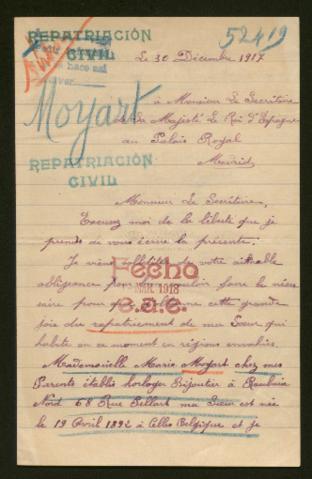 REPATRIACIÓN
CIVIL
52419
Le 30 Décembre 1917
Moyart
à Monsieur Le Secrétaire
de Sa Majesté Le Roi d'Espagne
au Palais Royal
Madrid
REPATRIACIÓN
CIVIL
Monsieur Le Secrétaire,
Excusez moi de la liberté que je
prends de vous écrire la présente.
Je viens solliciter de votre aimable
obligeance pour vouloir faire le néces-
saire pour que cette grande
joie du rapatriement de ma Sœur qui
habite en ce moment en régions envahies.
Fecho
MAR. 1918
Mademoiselle Marie Moyart chez mes
Parents établis horloger Bijoutier à Roubaix
Nord 68 Rue Sellart ma Sœur est née
le 19 Avril 1892 à Celles Belgique et je